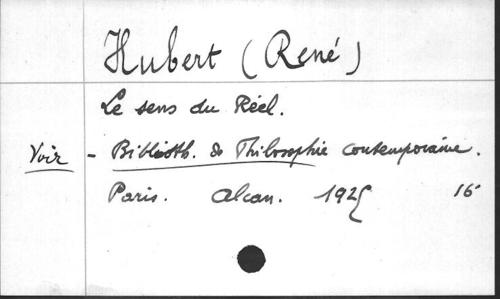 Hubert (René)
Le sens du Réel.
Voir - Biblioth. de Philosophie contemporaine.
Paris. Alcan. 1925 16°